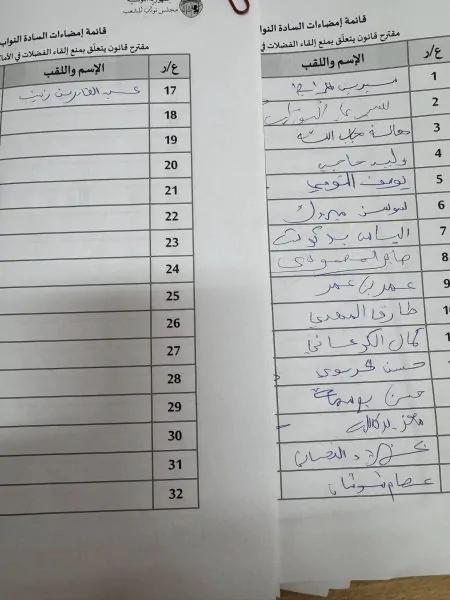 مجلس نواب الشعب
قائمة إمضاءات السادة النواب
مقترح قانون يتعلّق بمنع إلقاء الفضلات في الأما
ع/د الإسم واللقب
17 عبد القادر بن زينب
18
19
20
21
22
23
24
25
26
27
28
29
30
31
32
قائمة إمضاءات السادة النواب
مقترح قانون يتعلّق بمنع إلقاء الفضلات في
ع/د الإسم واللقب
1
2
3 هالة جاب الله
4 وليد حاجي
5 يوسف التومي
6 سوسن مبروك
7 الياس بوكوشة
8 صابر المصمودي
9 عمر بن عمر
10 طارق المهدي
1 كمال الكرعاني
حسن جربوعي
حسن بوسامة
معز بركالله
عصام شوشان